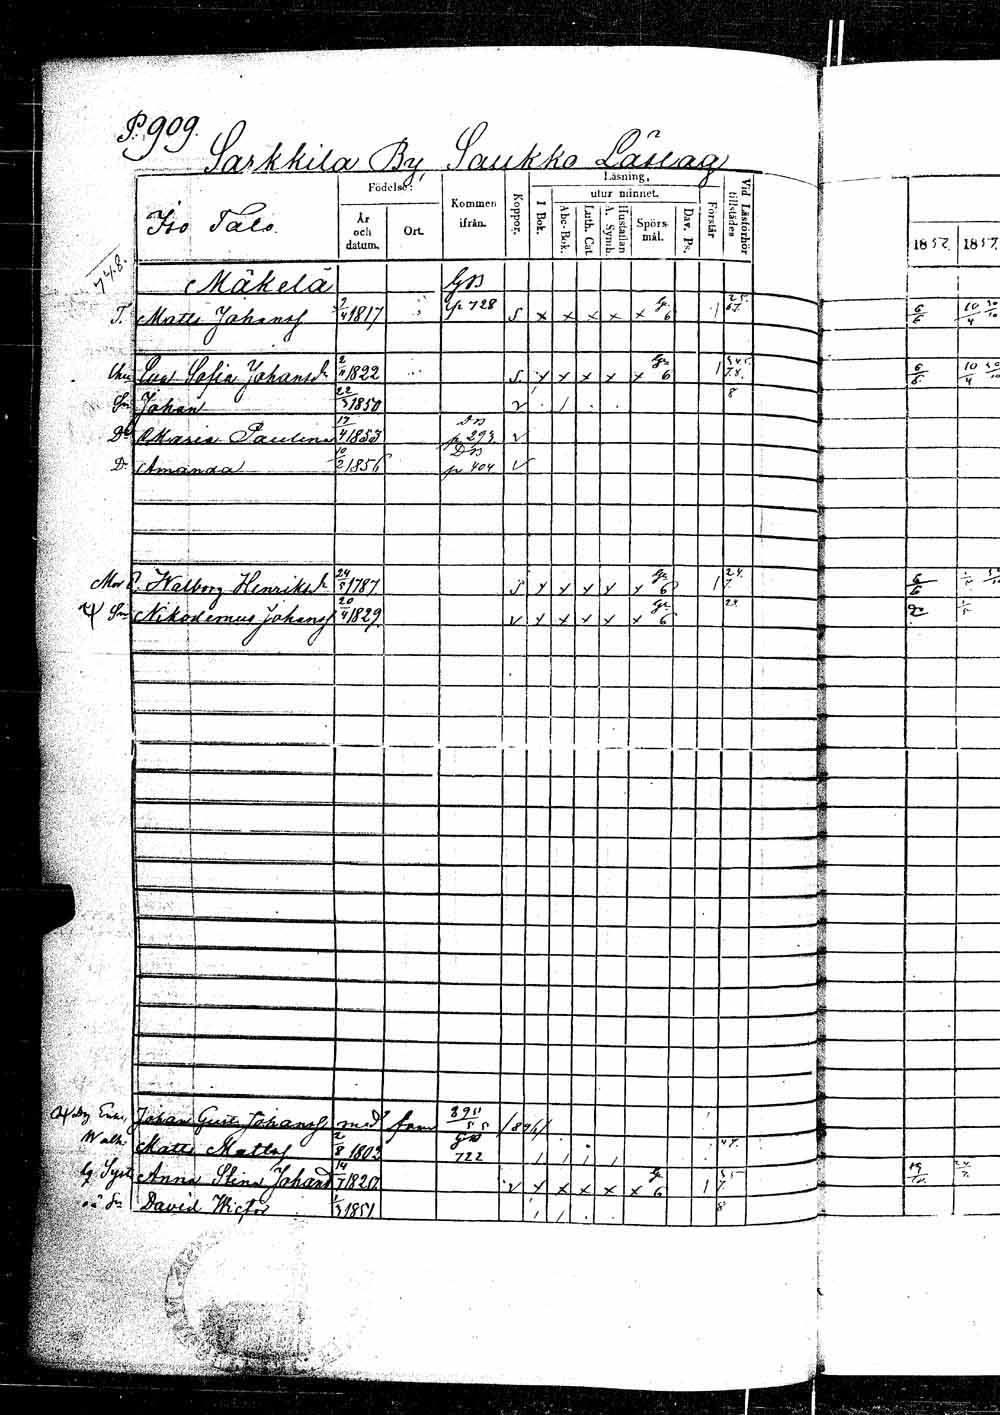 P. 909.
Sarkkila By, Saukko Läslag
Iso Talo.
Födelse:
År och datum.
Ort.
Kommen ifrån.
Koppor.
Läsning,
I Bok.
utur minnet.
Abc-Bok.
Luth. Cat
Hustaflan A. Symb.
Spörsmål.
Dav. Ps.
Förstår
Vid Läsförhör tillstädes
1852. 1857.
748.
Mäkelä GB
T. Matts Johansf 2/4 1817 p 728 S x x x x x Gr 6 1 6/6 10/4
Sofia Johansdr 2/11 1822 S. x x x x x Gr 6 1 10/4
Sn Johan 22/3 1850 v 8
Dr Maria Paulina 17/4 1853 DB p 293 v
Dr Amanda 10/2 1856 DB p 404 v
Mor E. Walborg Henriksdr 24/5 1787 S x x x x x Gr 6 1 24. 7. 6/6
Sn Nikodemus Johansf 20/4 1829 v x x x x x Gr 6
Johan Gust Johansf med fam 1891
Matts Mattsf 2/8 1803 GB 722
Syst Anna Stina Johansd 14/7 1820 v x x x x x Gr 6 1
Sn David Wictor 1/3 1851 8